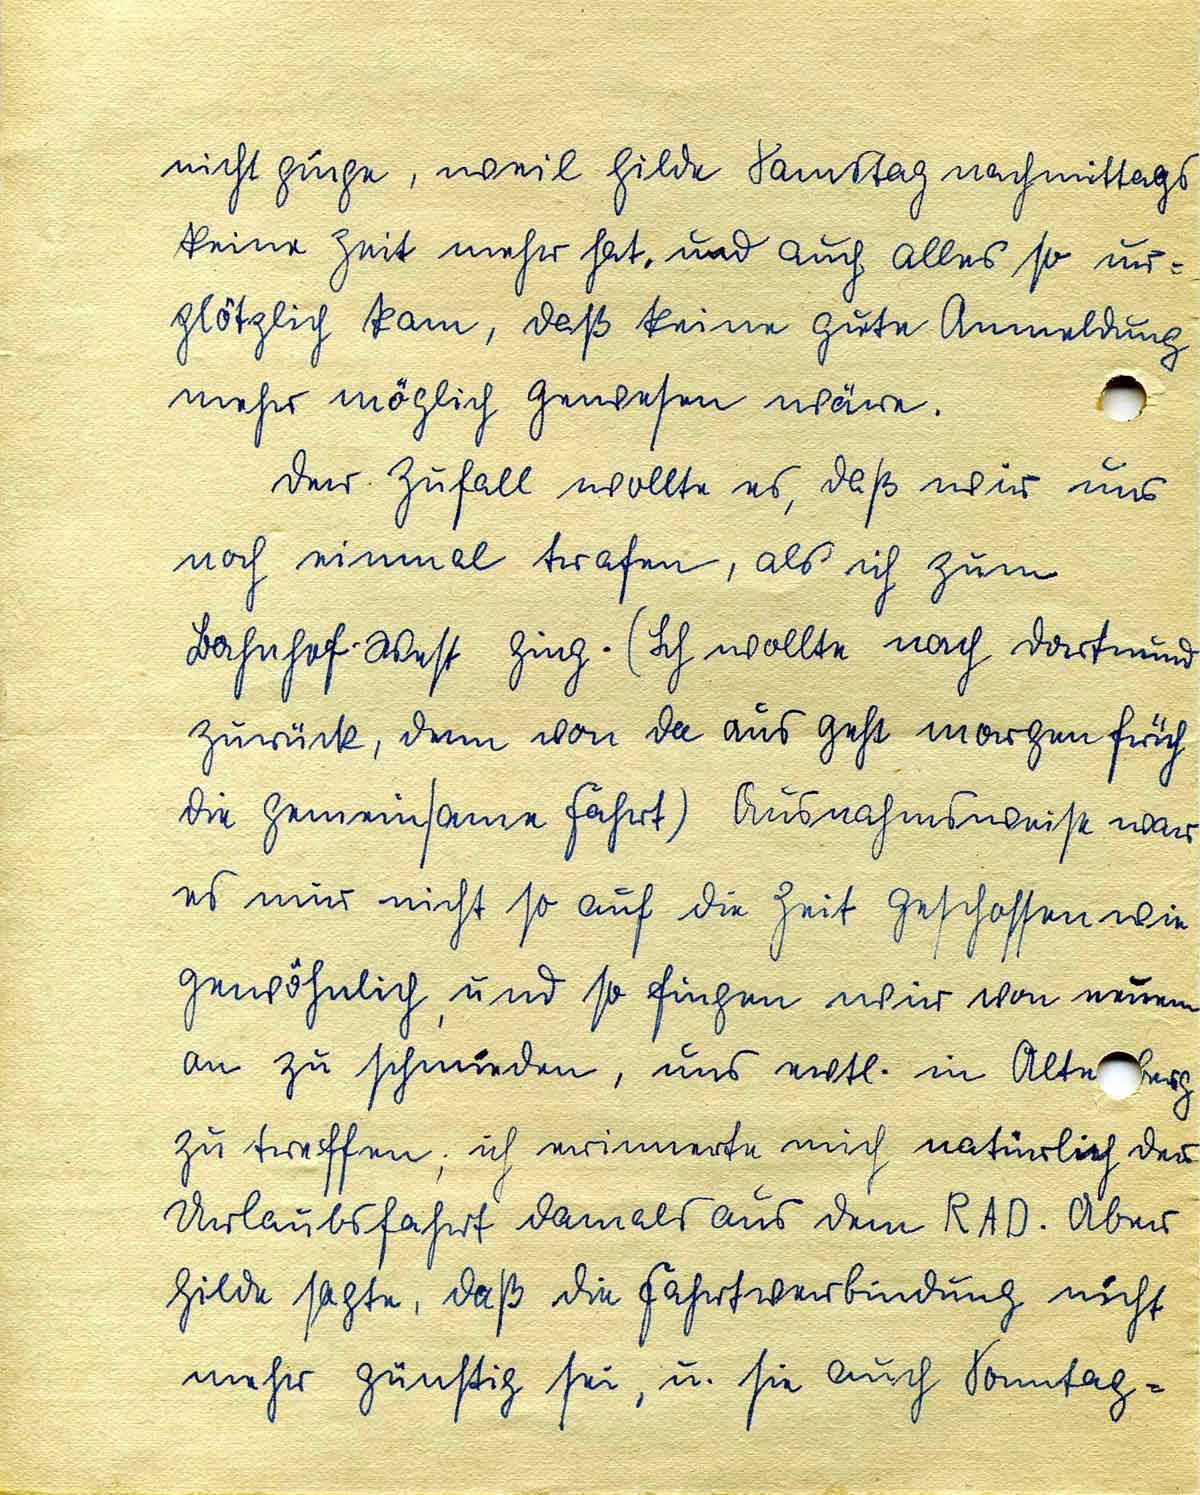 nicht ginge, weil Hilde Samstag nachmittags
keine Zeit mehr hat, und auch alles so ur-
plötzlich kam, daß keine gute Anmeldung
mehr möglich gewesen wäre.
Der Zufall wollte es, daß wir uns
noch einmal trafen, als ich zum
Bahnhof-West ging. (Ich wollte nach Dortmund
zurück, denn von da aus geht morgen früh
die gemeinsame Fahrt) Ausnahmsweise war
es mir nicht so auf die Zeit geschossen wie
gewöhnlich, und so fingen wir von neuem
an zu schmieden, uns evtl. in Altenberg
zu treffen; ich erinnerte mich natürlich der
Urlaubsfahrt damals aus dem RAD. Aber
Hilde sagte, daß die Fahrtverbindung nicht
mehr günstig sei, u. sie auch Sonntag-